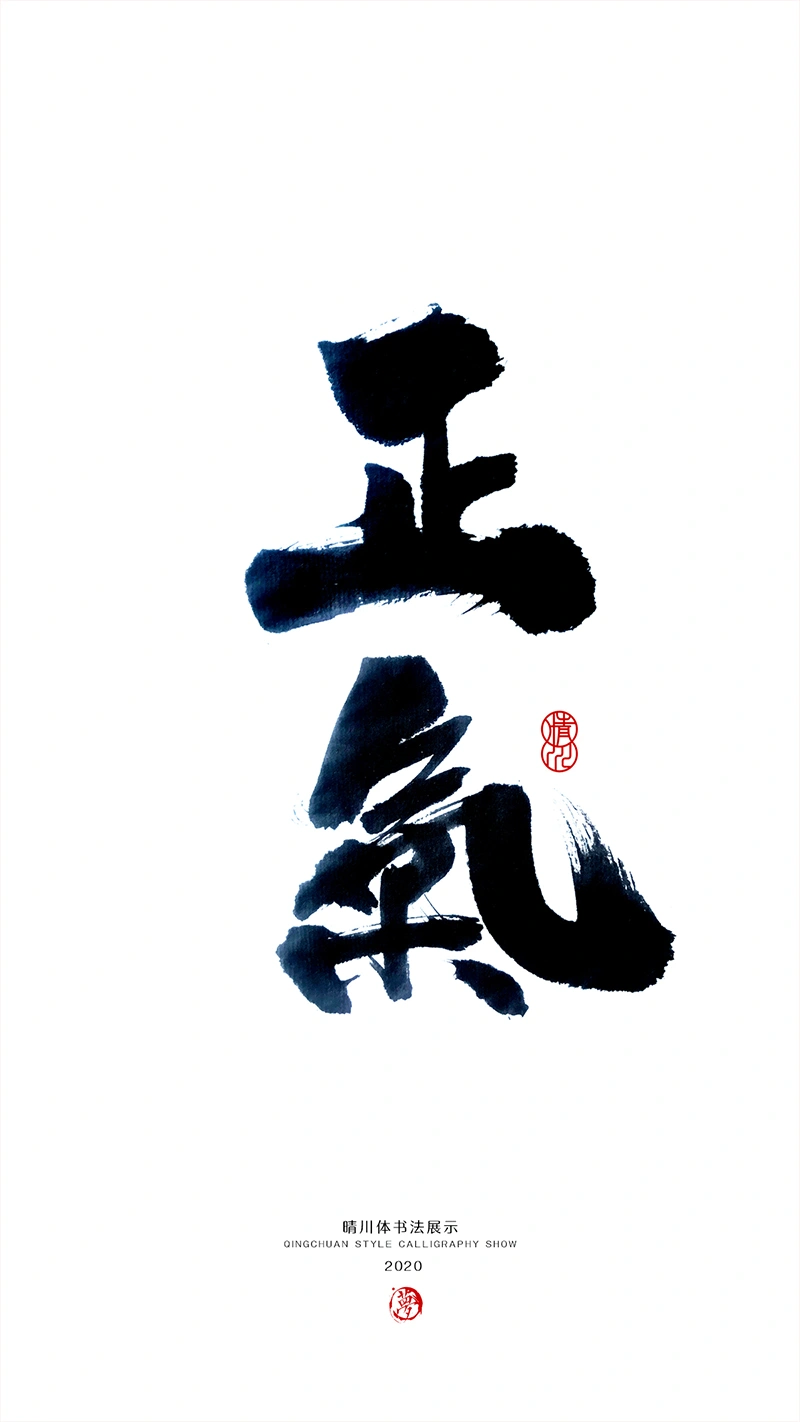 正
氣
晴川
晴川体书法展示
QINGCHUAN STYLE CALLIGRAPHY SHOW
2020
夢